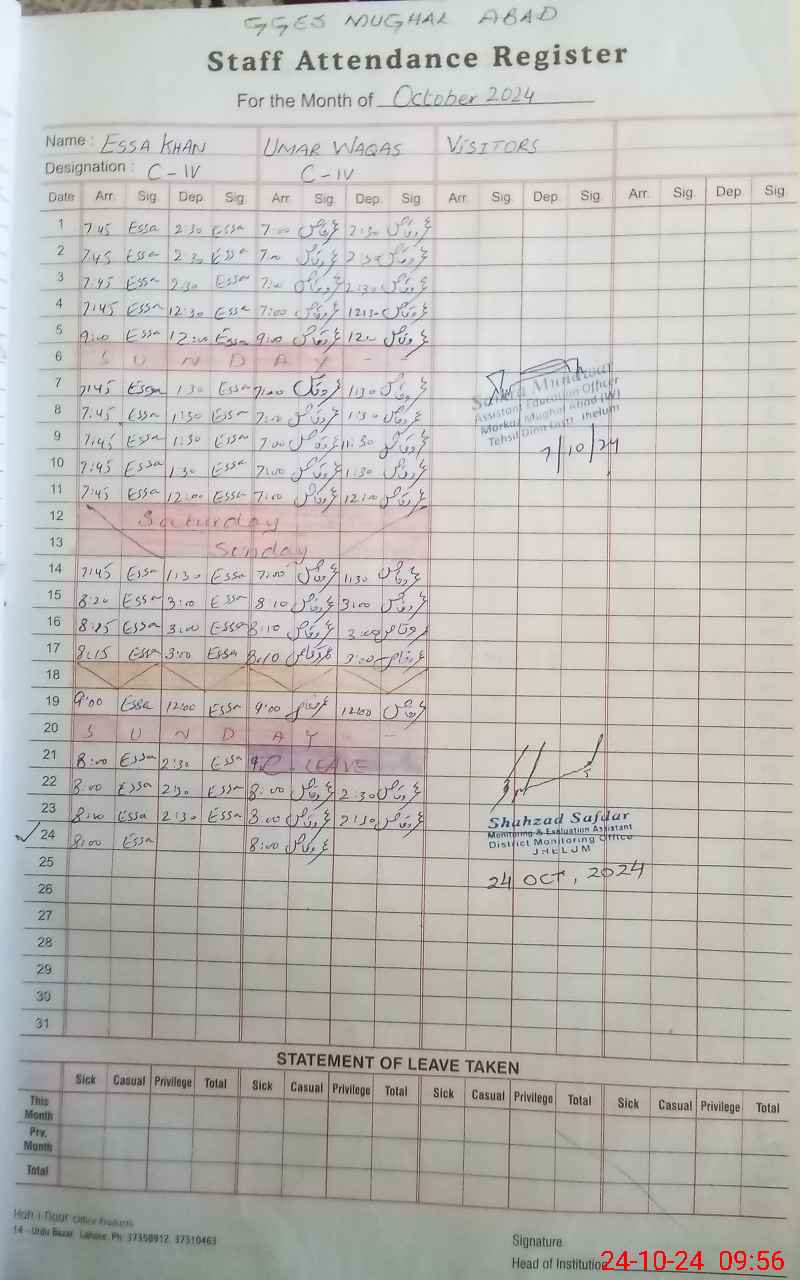 GGES MUGHAL ABAD
Staff Attendance Register
For the Month of October 2024
Name : ESSA KHAN UMAR WAQAS VISITORS
Designation : C-IV C-IV
Date Arr. Sig. Dep. Sig. Arr. Sig. Dep. Sig. Arr. Sig. Dep. Sig. Arr. Sig. Dep. Sig.
1 7:45 Essa 2:30 Essa 7:00 عمر وقاص 2:30 عمر وقاص
2 7:45 Essa 2:30 Essa 7:00 عمر وقاص 2:30 عمر وقاص
3 7:45 Essa 2:30 Essa 7:00 عمر وقاص 2:30 عمر وقاص
4 7:45 Essa 12:30 Essa 7:00 عمر وقاص 12:30 عمر وقاص
5 9:00 Essa 12:00 Essa 9:00 عمر وقاص 12:00 عمر وقاص
6 S U N D A Y - -
7 7:45 Essa 1:30 Essa 7:00 عمر وقاص 1:30 عمر وقاص
8 7:45 Essa 1:30 Essa 7:00 عمر وقاص 1:30 عمر وقاص
9 7:45 Essa 1:30 Essa 7:00 عمر وقاص 1:30 عمر وقاص
10 7:45 Essa 1:30 Essa 7:00 عمر وقاص 1:30 عمر وقاص
11 7:45 Essa 12:00 Essa 7:00 عمر وقاص 12:00 عمر وقاص
Munawar
Assistant Education Officer
Markaz Mughal Abad (W)
Tehsil Dina Distt. Jhelum
7/10/24
12 Saturday
13 Sunday
14 7:45 Essa 1:30 Essa 7:00 عمر وقاص 1:30 عمر وقاص
15 8:20 Essa 3:00 Essa 8:10 عمر وقاص 3:00 عمر وقاص
16 8:25 Essa 3:00 Essa 8:10 عمر وقاص 3:00 عمر وقاص
17 8:15 Essa 3:00 Essa 8:10 عمر وقاص 3:00 عمر وقاص
18
19 9:00 Essa 12:00 Essa 9:00 عمر وقاص 12:00 عمر وقاص
20 S U N D A Y - -
21 8:00 Essa 2:30 Essa LEAVE
22 8:00 Essa 2:30 Essa 8:00 عمر وقاص 2:30 عمر وقاص
23 8:00 Essa 2:30 Essa 8:00 عمر وقاص 2:30 عمر وقاص
24 8:00 Essa 8:00 عمر وقاص
Shahzad Safdar
Monitoring & Evaluation Assistant
District Monitoring Office
JHELUM
24 OCT, 2024
25
26
27
28
29
30
31
STATEMENT OF LEAVE TAKEN
Sick Casual Privilege Total Sick Casual Privilege Total Sick Casual Privilege Total Sick Casual Privilege Total
This Month
Prv. Month
Total
Koh-i-Noor Office Products
14 - Urdu Bazar, Lahore. Ph: 37359912, 37310463
Signature
Head of Institution
24-10-24 09:56